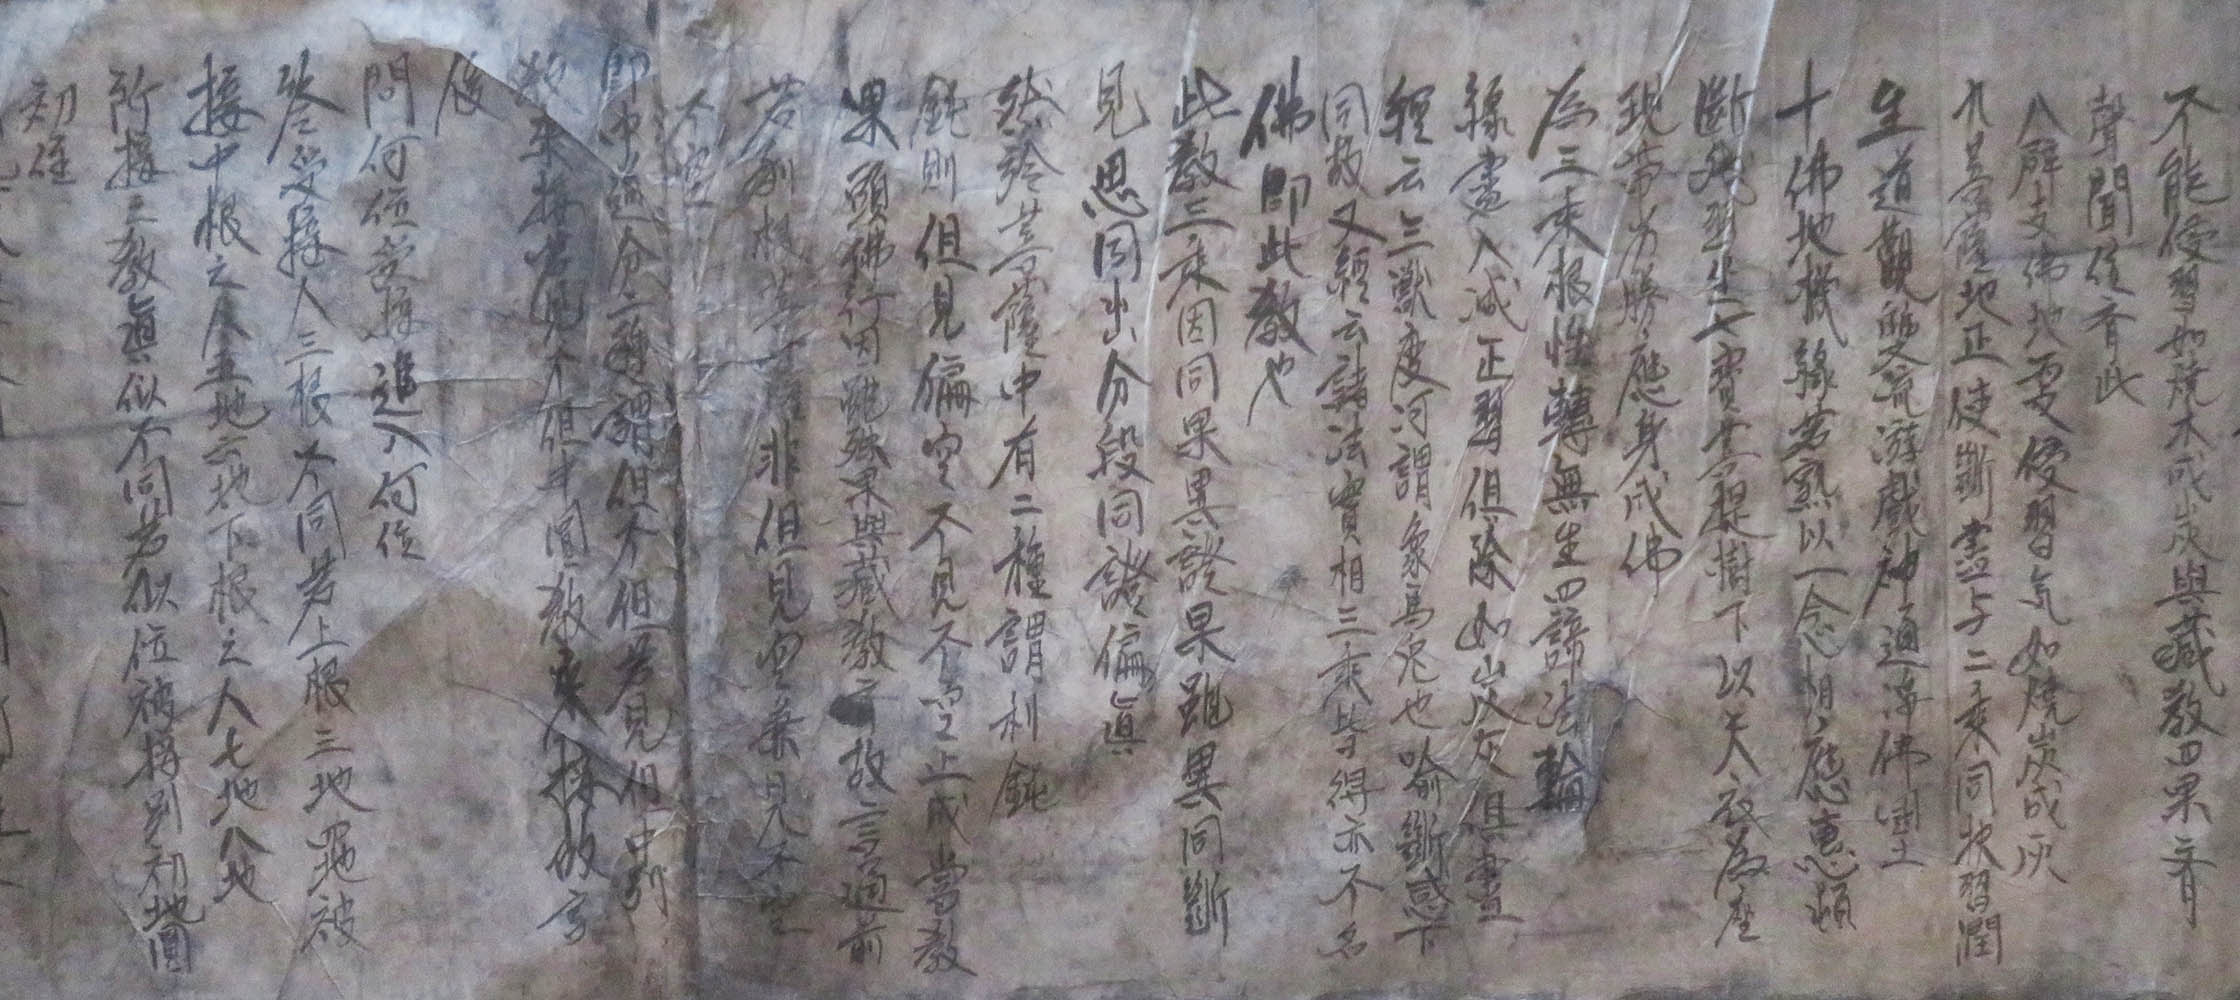 不能侵習如燒木成炭與藏教四果齊
聲聞位齊此
八辟支佛地更侵習气如燒炭成灰
九菩薩地正使斷盡与二乘同扶習潤
生道觀雙流游戲神通淨佛国土
十佛地機緣若熟以一念相應惠頓
斷殘習坐七寶菩提樹下以天衣為座
現帶劣勝應身成佛
為三乘根性轉無生四諦法輪
緣盡入滅正習俱除如炭灰俱盡
經云三獸度河謂象馬兔也喻斷惑下
同故又經云諸法實相三乘皆得亦不名
佛即此教也
此教三乘因同果異證果雖異同斷
見思同出分段同證偏真
然於菩薩中有二種謂利鈍
鈍則但見偏空不見不空止成當教
果頭佛行因雖殊果與藏教齊故言通前
若利根菩薩非但見空兼見不空
不空
即中道分二種謂但不但若見但中別
教來接若見不但中圓教來接故言
後
問何位受接進入何位
答受接人三根不同若上根三地四地被
接中根之人五地六地下根之人七地八地
所接之教真似不同若似位被接別初地圓
初住